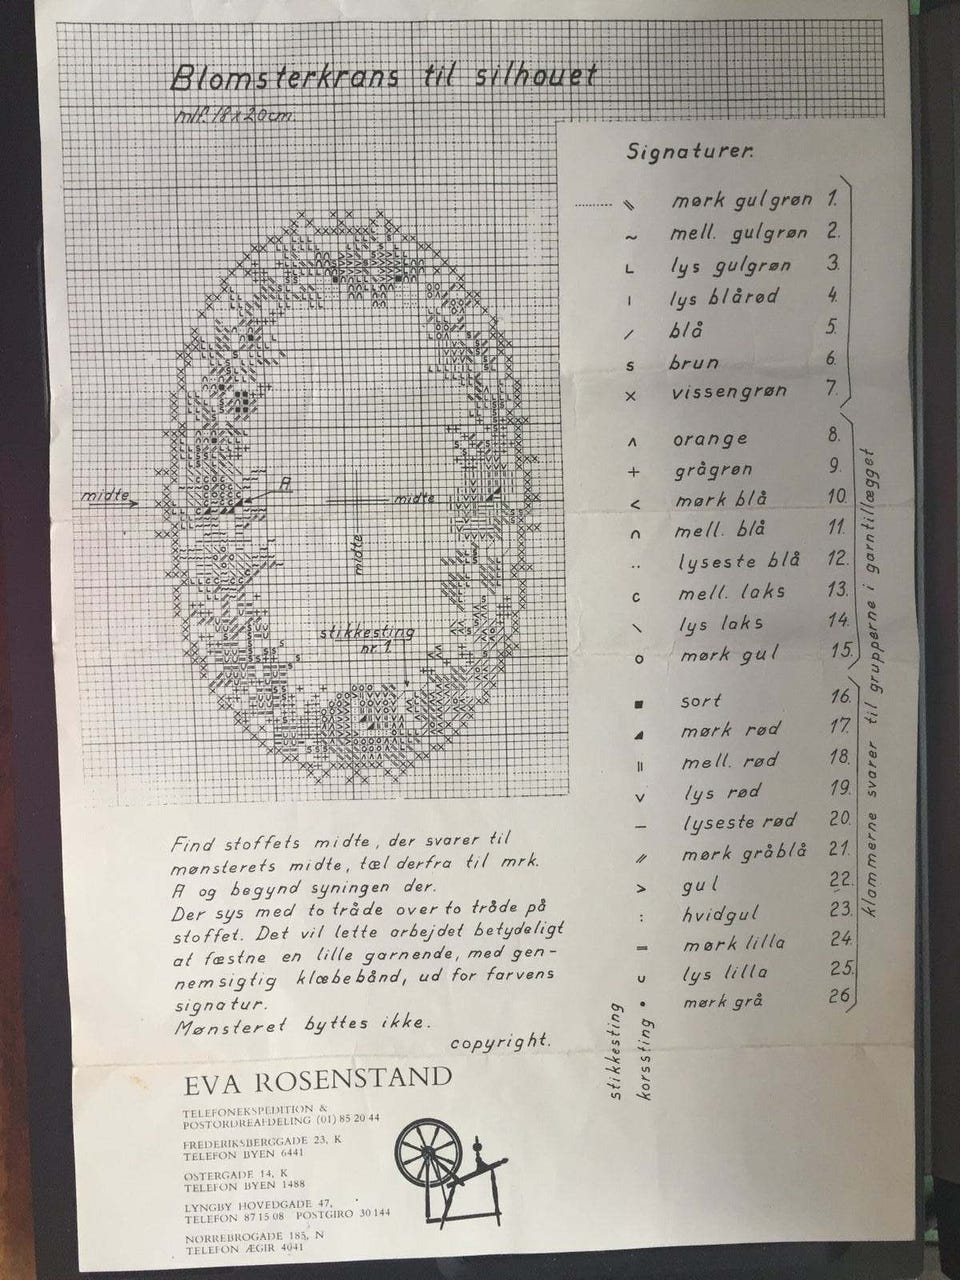 Blomsterkrans til silhouet
mlf. 18 x 20 cm.
Signaturer.
mørk gulgrøn 1.
mell. gulgrøn 2.
lys gulgrøn 3.
lys blårød 4.
blå 5.
brun 6.
vissengrøn 7.
orange 8.
grågrøn 9.
mørk blå 10.
mell. blå 11.
lyseste blå 12.
mell. laks 13.
lys laks 14.
mørk gul 15.
sort 16.
mørk rød 17.
mell. rød 18.
lys rød 19.
lyseste rød 20.
mørk gråblå 21.
gul 22.
hvidgul 23.
mørk lilla 24.
lys lilla 25.
mørk grå 26.
klammerne svarer til grupperne i garntillægget
stikkesting
korssting
midte
A
midte
midte
stikkesting
nr. 1.
Find stoffets midte, der svarer til
mønsterets midte, tæl derfra til mrk.
A og begynd syningen der.
Der sys med to tråde over to tråde på
stoffet. Det vil lette arbejdet betydeligt
at fæstne en lille garnende, med gen-
nemsigtig klæbebånd, ud for farvens
signatur.
Mønsteret byttes ikke.
copyright.
EVA ROSENSTAND
TELEFONEKSPEDITION &
POSTORDREAFDELING (01) 85 20 44
FREDERIKSBERGGADE 23, K
TELEFON BYEN 6441
ØSTERGADE 14, K
TELEFON BYEN 1488
LYNGBY HOVEDGADE 47,
TELEFON 87 15 08 POSTGIRO 30 144
NØRREBROGADE 185, N
TELEFON ÆGIR 4041